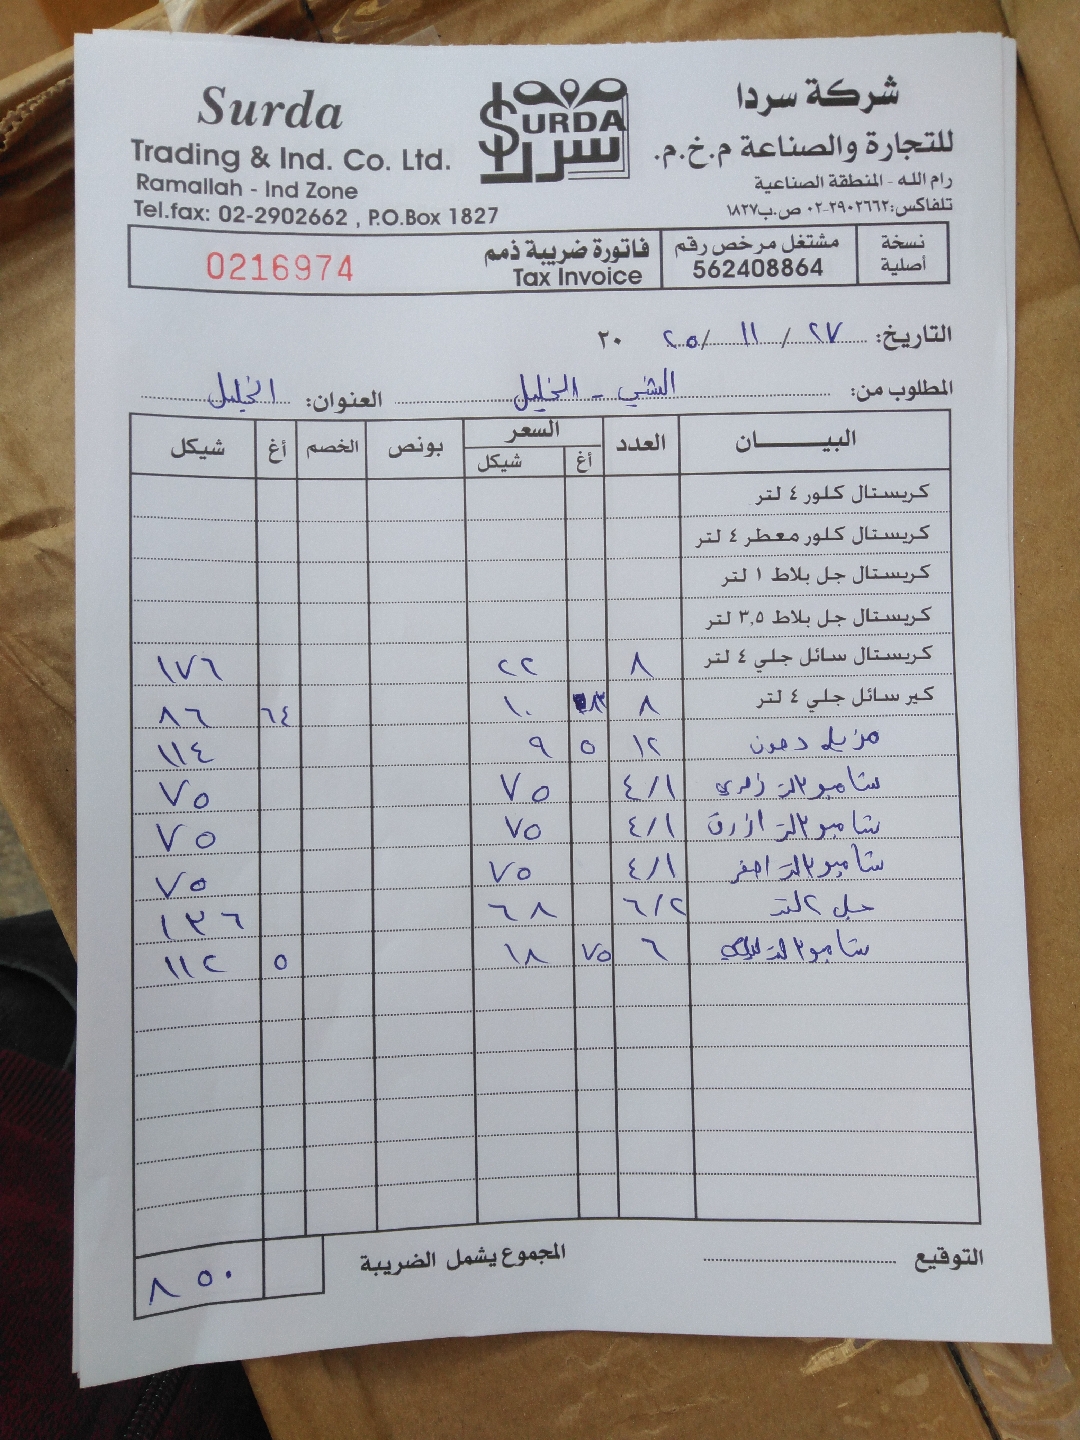 Surda
Trading & Ind. Co. Ltd.
Ramallah - Ind Zone
Tel.fax: 02-2902662 , P.O.Box 1827
SURDA
سردا
شركة سردا
للتجارة والصناعة م.خ.م.
رام الله - المنطقة الصناعية
تلفاكس: ٢٩٠٢٦٦٢-٠٢ ص.ب ١٨٢٧
نسخة أصلية
مشتغل مرخص رقم 562408864
فاتورة ضريبة ذمم
Tax Invoice
0216974
التاريخ: ٢٧ / ١١ / ٢٥ ٢٠
المطلوب من: - الخليل العنوان: الخليل
البيــــــان العدد السعر بونص الخصم أغ شيكل
أغ شيكل
كريستال كلور ٤ لتر
كريستال كلور معطر ٤ لتر
كريستال جل بلاط ١ لتر
كريستال جل بلاط ٣,٥ لتر
كريستال سائل جلي ٤ لتر ٨ ٢٢ ١٧٦
كير سائل جلي ٤ لتر ٨ ١٠ ٦٤ ٨٦
مزيل دهون ١٢ ٥ ٩ ١١٤
شامبو ٣لتر زهري ٤/١ ٧٥ ٧٥
شامبو ٣لتر ازرق ٤/١ ٧٥ ٧٥
شامبو ٣لتر اصفر ٤/١ ٧٥ ٧٥
جل ٢لتر ٦/٢ ٦٨ ١٣٦
شامبو ٣لتر ٦ ٧٥ ١٨ ٥ ١١٢
التوقيع
المجموع يشمل الضريبة ٨٥٠